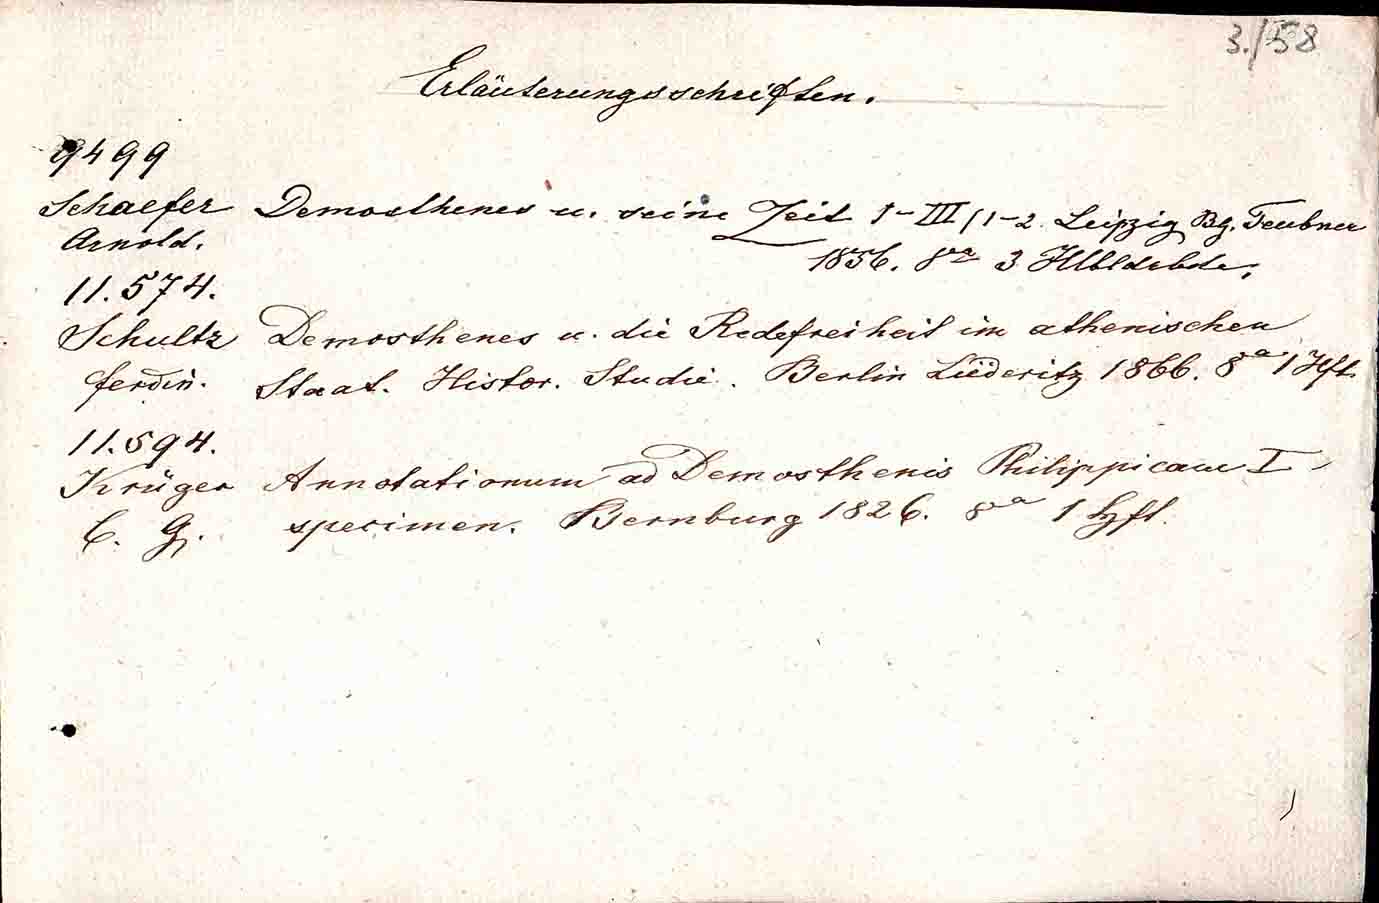 3./58
Erläuterungsschriften.
9499
Schaefer Demosthenes u. seine Zeit I-III/1-2. Leipzig Bg. Teubner
Arnold. 1856. 8ᵃ 3 Hlbldrbde.
11.574.
Schultz Demosthenes u. die Redefreiheit im athenischen
Ferdin. Staat. Histor. Studie. Berlin Lüderitz 1866. 8ᵃ 1 Hft.
11.594.
Krüger Annotationum ad Demosthenis Philippicam I
C. G. specimen. Bernburg 1826. 8ᵃ 1 Hft.